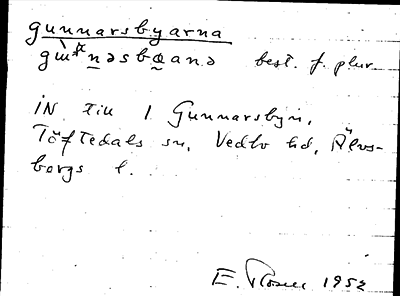 gunnarsbyarna
best. f. plur.
IN till 1 Gunnarsbyn,
Töftedals sn, Vedbo hd, Älvs-
borgs l.
E. Rosell 1952